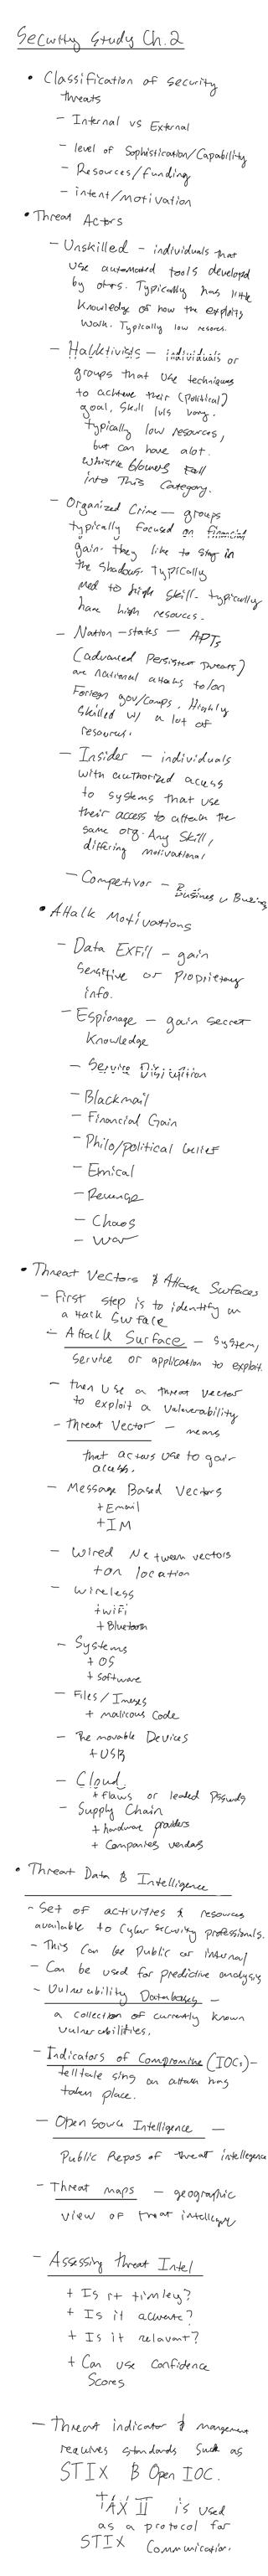 Security Study Ch.2
• Classification of security
threats
- Internal vs External
- level of Sophistication/Capability
- Resources/funding
- intent/motivation
• Threat Actors
- Unskilled - individuals that
use automated tools developed
by others. Typically has little
Knowledge of how the exploits
work. Typically low resources.
- Hacktivists - individuals or
groups that use techniques
to achieve their (political)
goal. Skill lvls vary.
typically low resources,
but can have alot.
whistle blowers fall
into This Category.
- Organized Crime - groups
typically focused on financial
gain. they like to stay in
the shadows. Typically
med to high skill. typically
have high resources.
- Nation-states - APTs
(advanced Persistent Threats)
are national attacks to/on
Foriegn gov/comps. Highly
skilled w/ a lot of
resources.
- Insider - individuals
with authorized access
to systems that use
their access to attack the
same org. Any Skill,
differing motivational
- Competitor - Business v Business
• Attack Motivations
- Data EXFil - gain
Sensitive or Proprietary
info.
- Espionage - gain secret
Knowledge
- Service Disruption
- Blackmail
- Financial Gain
- Philo/political belief
- Ethical
- Revenge
- Chaos
- War
• Threat Vectors & Attack Surfaces
- First step is to identify an
attack Surface
- Attack Surface - System,
Service or application to exploit.
- then use a threat vector
to exploit a vulnerability
- Threat Vector - means
that actors use to gain
access.
- Message Based Vectors
+ Email
+ IM
- Wired Network vectors
+ on location
- Wireless
+ wifi
+ Bluetooth
- Systems
+ OS
+ Software
- Files/Images
+ malicous Code
- Removable Devices
+ USB
- Cloud
+ flaws or leaked
- Supply Chain
+ hardware providers
+ Companies vendors
• Threat Data & Intelligence
- Set of activities & resources
available to Cyber Security professionals.
- This can be Public or internal
- Can be used for predictive analysis
- Vulnerability Databases -
a collection of currently known
vulnerabilities.
- Indicators of Compromise (IOCs) -
telltale sing an attack has
taken place.
- Open Source Intelligence -
Public Repos of threat intellegence
- Threat maps - geographic
view of
- Assessing threat Intel
+ Is it timley?
+ Is it accurate?
+ Is it relavant?
+ Can use Confidence
Scores
- Threat indicator & mangement
requires standards such as
STIX & Open IOC.
TAXII is used
as a protocol for
STIX Communication.